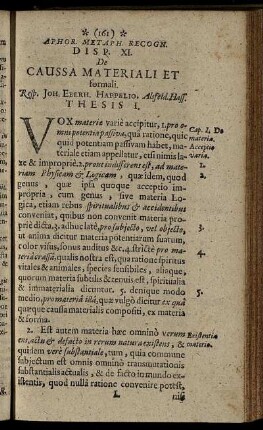 * (161) *
APHOR. METAPH. RECOGN.
DISP. XI.
De
CAUSSA MATERIALI ET
formali.
Resp. JOH. EBERH. HAPPELIO. Alsfeld. Hass.
THESIS I.
VOX materiæ variè accipitur, 1. pro o-
mni potentia passiva, qua ratione, quic
quid potentiam passivam habet, ma-
teriale etiam appellatur, etsi nimis la-
xe & impropriè. 2. prout indifferens est, ad mate-
riam Physicam & Logicam, quæ idem, quod
genus, quæ ipsa quoque acceptio im-
propria, cum genus, sive materia Lo-
gica, etiam rebus spiritualibus & accidentibus
conveniat, quibus non convenit materia pro-
priè dicta. 3. adhuc latè, pro subjecto, vel objecto,
ut anima dicitur materia potentiarum suarum,
color visus, sonus auditus &c. 4. strictè pro ma-
teria crassâ: qualis nostra est, qua ratione spiritus
vitales & animales, species sensibiles, aliaque,
quorum materia subtilis & tenuis est, spiritualia
& immaterialia dicuntur. 5. denique modo
medio, pro materiâ illâ, quæ vulgò dicitur ex quâ
quæque caussa materialis compositi, ex materia
& forma.
2. Est autem materia hæc omninò verum
ens, actu & defacto in rerum natura existens, &
quidem verè substantiale, tum, quia commune
subjectum est omnis omninò transmutationis
substantialis actualis, & de facto in mundo ex-
istentis, quod nullâ ratione convenire potest,
L
nisi
Cap. I. De
materia.
Acceptio
varia.
2.
3.
4.
5.
Existentia
materiæ.